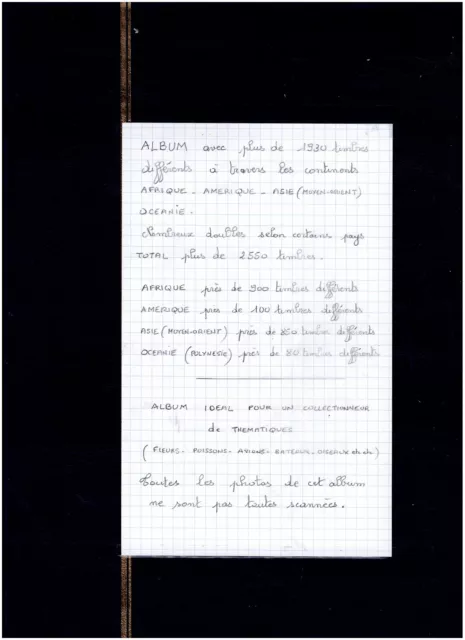 ALBUM avec plus de 1930 timbres
différents à travers les continents
AFRIQUE - AMERIQUE - ASIE (MOYEN-ORIENT)
OCEANIE.
Nombreux doubles selon certains pays
TOTAL plus de 2550 timbres.
AFRIQUE près de 900 timbres différents
AMERIQUE près de 100 timbres différents
ASIE (MOYEN-ORIENT) près de 850 timbres différents
OCEANIE (POLYNESIE) près de 80 timbres différents
ALBUM IDEAL POUR UN COLLECTIONNEUR
de THEMATIQUES
(FLEURS - POISSONS - AVIONS - BATEAUX - OISEAUX etc etc)
Toutes les photos de cet album
ne sont pas toutes scannées.